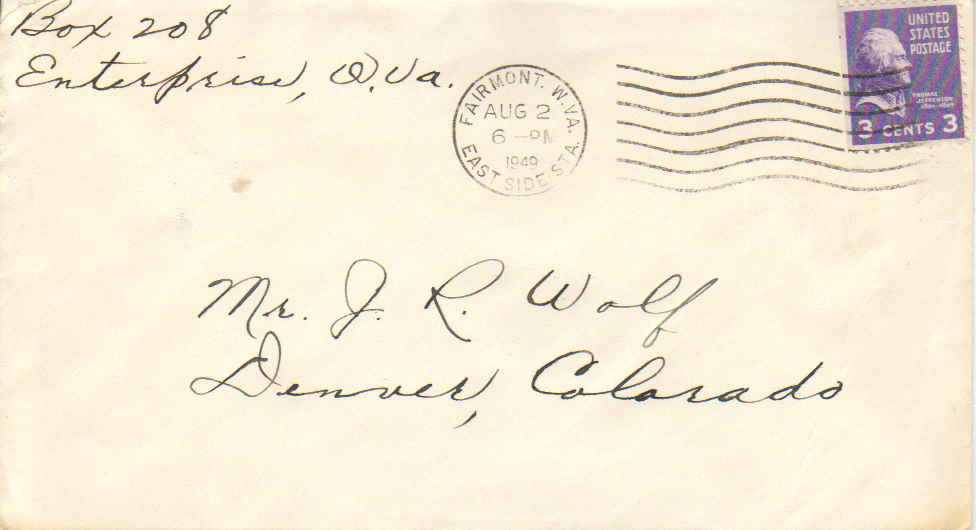 Box 208
Enterprise, W.Va.
FAIRMONT. W.VA.
AUG 2
6 -PM
1949
EAST SIDE STA.
UNITED
STATES
POSTAGE
THOMAS
JEFFERSON
3 CENTS 3
Mr. J. R. Wolf
Denver, Colorado